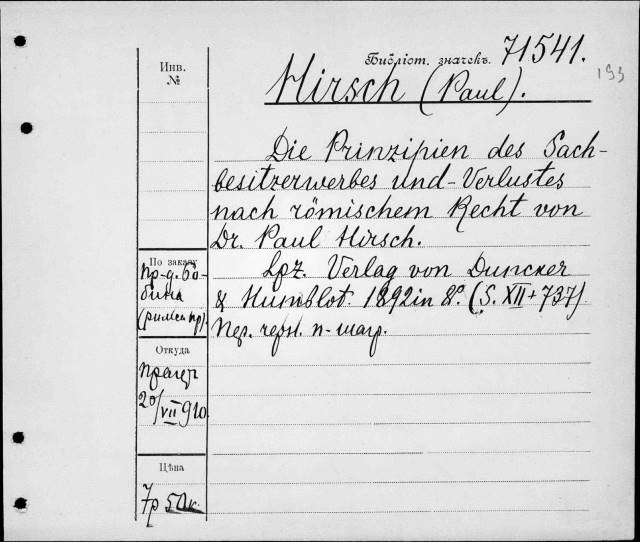 Библіот. значекъ. 71541.
193
Инв.
№
Hirsch (Paul).
Die Prinzipien des Sach-
besitzerwerbes und-Verlustes
nach römischem Recht von
Dr. Paul Hirsch.
Lpz. Verlag von Duncker
& Humblot. 1892 in 8º. (S. XII + 737)
Пер.
По заказу
пр-д. Бо-
(римск пр).
Откуда
20/VII 910
Цѣна
7р 50к.